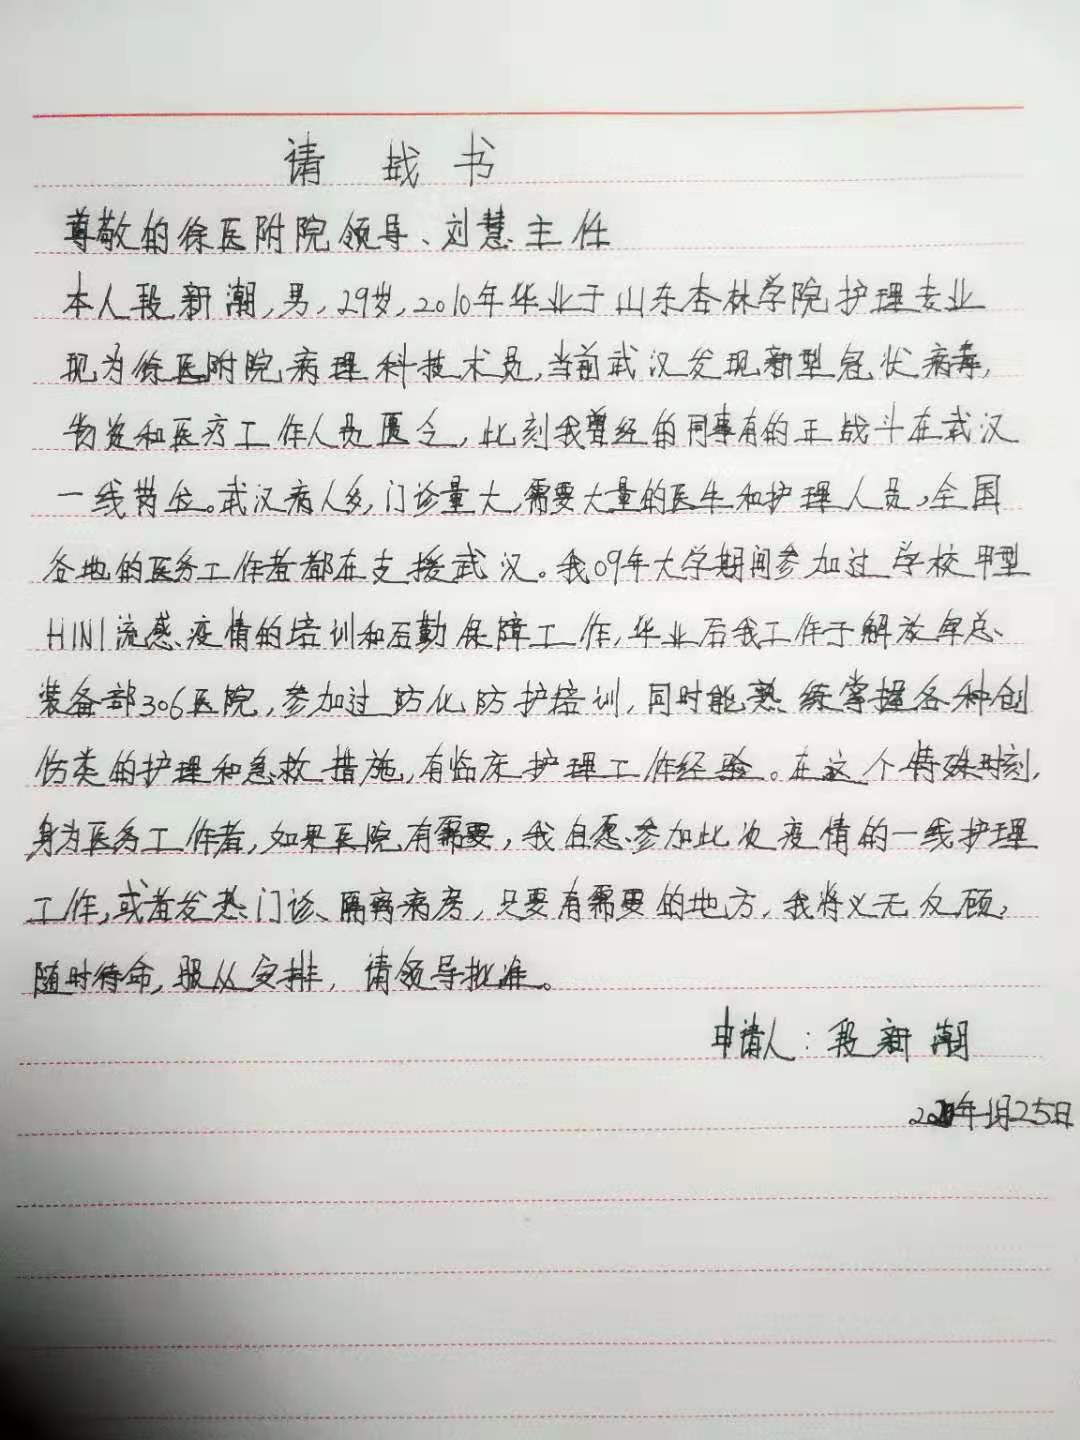 请战书
尊敬的徐医附院领导、刘慧主任
本人段新潮,男,29岁,2010年毕业于山东杏林学院护理专业
现为徐医附院病理科技术员,当前武汉发现新型冠状病毒,
物资和医疗工作人员匮乏,此刻我曾经的同事有的正战斗在武汉
一线岗位。武汉病人多,门诊量大,需要大量的医生和护理人员,全国
各地的医务工作者都在支援武汉。我09年大学期间参加过学校甲型
H1N1流感疫情的培训和后勤保障工作,毕业后我工作于解放军总
装备部306医院,参加过防化防护培训,同时能熟练掌握各种创
伤类的护理和急救措施,有临床护理工作经验。在这个特殊时刻,
身为医务工作者,如果医院有需要,我自愿参加此次疫情的一线护理
工作,或者发热门诊、隔离病房,只要有需要的地方,我将义无反顾,
随时待命,服从安排,请领导批准。
申请人:段新潮
2020年1月25日